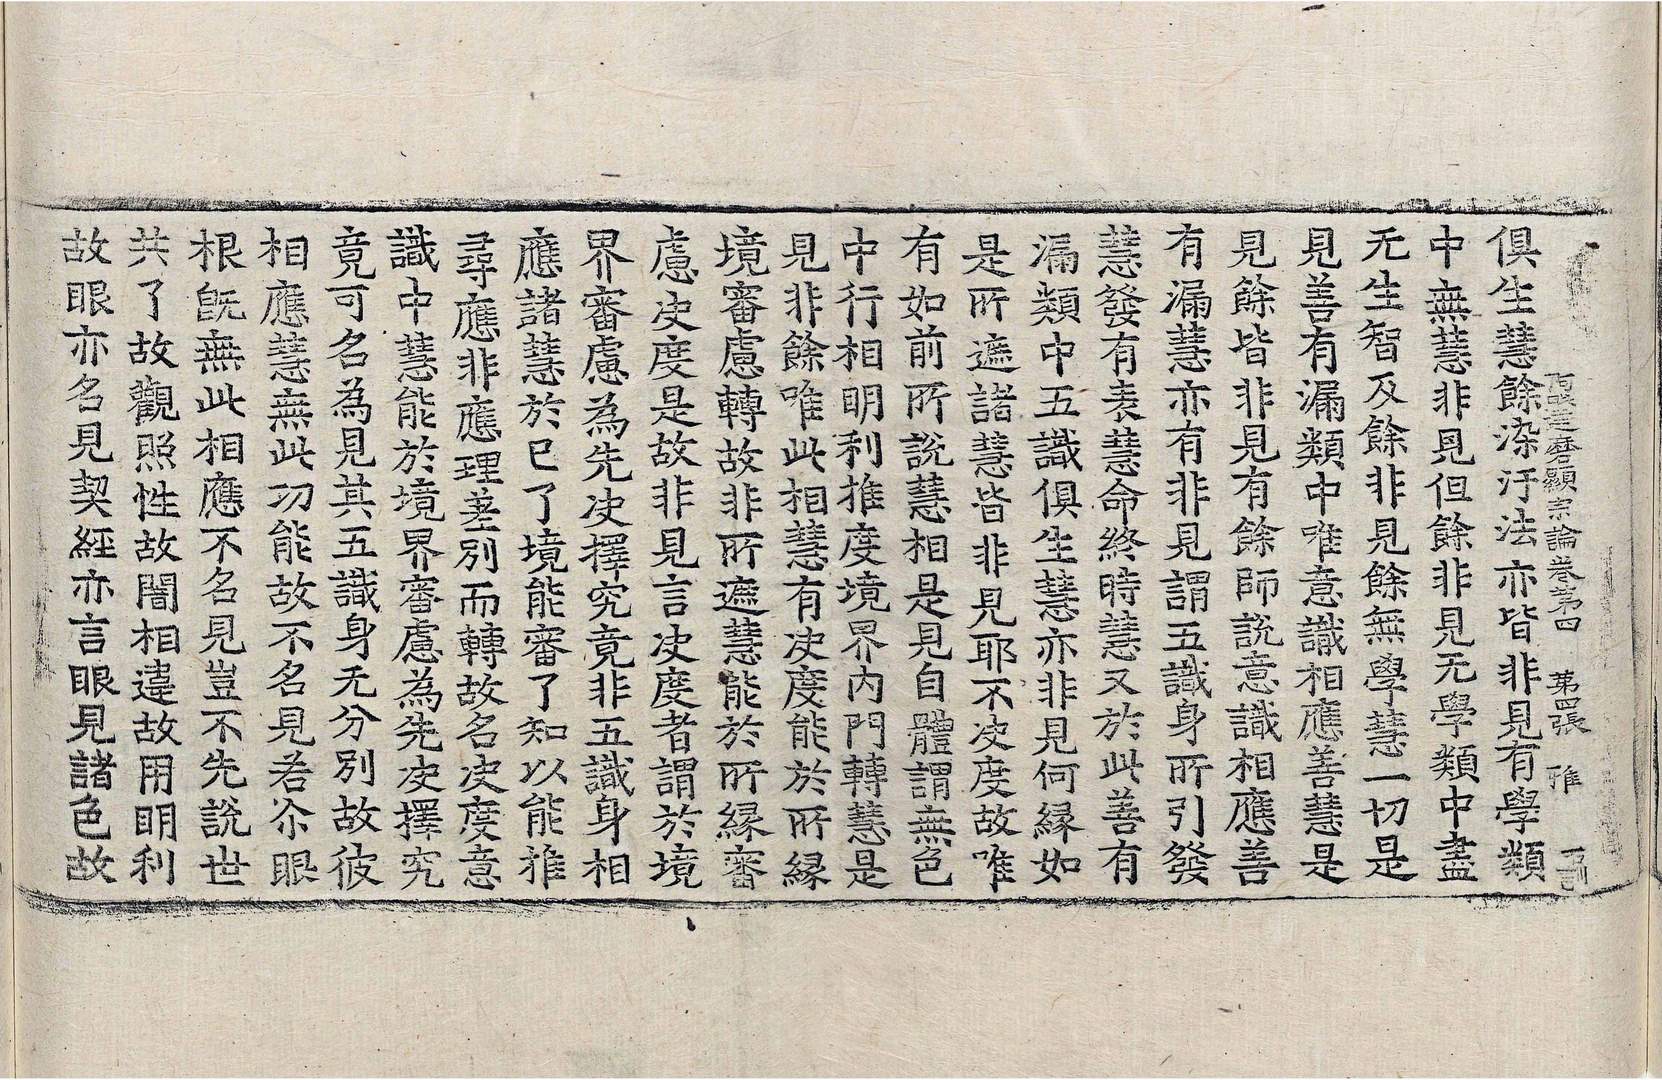 阿毗達磨顯宗論卷第四　第四張　雅
俱生慧餘染汙法亦皆非見有學類
中無慧非見但餘非見无學類中盡
无生智及餘非見餘無學慧一切是
見善有漏類中唯意識相應善慧是
見餘皆非見有餘師說意識相應善
有漏慧亦有非見謂五識身所引發
慧發有表慧命終時慧又於此善有
漏類中五識俱生慧亦非見何緣如
是所遮諸慧皆非見耶不決度故唯
有如前所說慧相是見自體謂無色
中行相明利推度境界內門轉慧是
見非餘唯此相慧有決度能於所緣
境審慮轉故非所遮慧能於所緣審
慮決度是故非見言決度者謂於境
界審慮為先決擇究竟非五識身相
應諸慧於已了境能審了知以能推
尋應非應理差別而轉故名決度意
識中慧能於境界審慮為先決擇究
竟可名為見其五識身无分別故彼
相應慧無此功能故不名見若尒眼
根旣無此相應不名見豈不先說世
共了故觀照性故闇相違故用明利
故眼亦名見契經亦言眼見諸色故